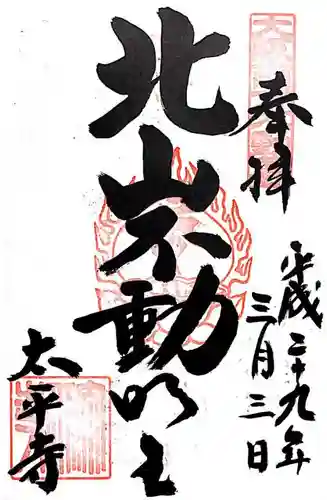 奉拝
平成二十九年
三月三日
北山不動明王
太平寺